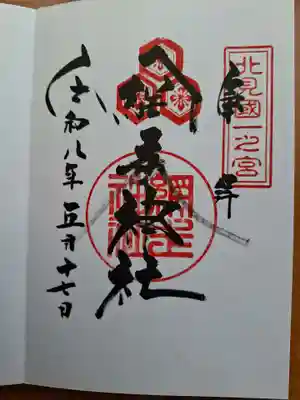 北見國一之宮
奉拝
網走神社
網走
神社
令和八年五月十七日